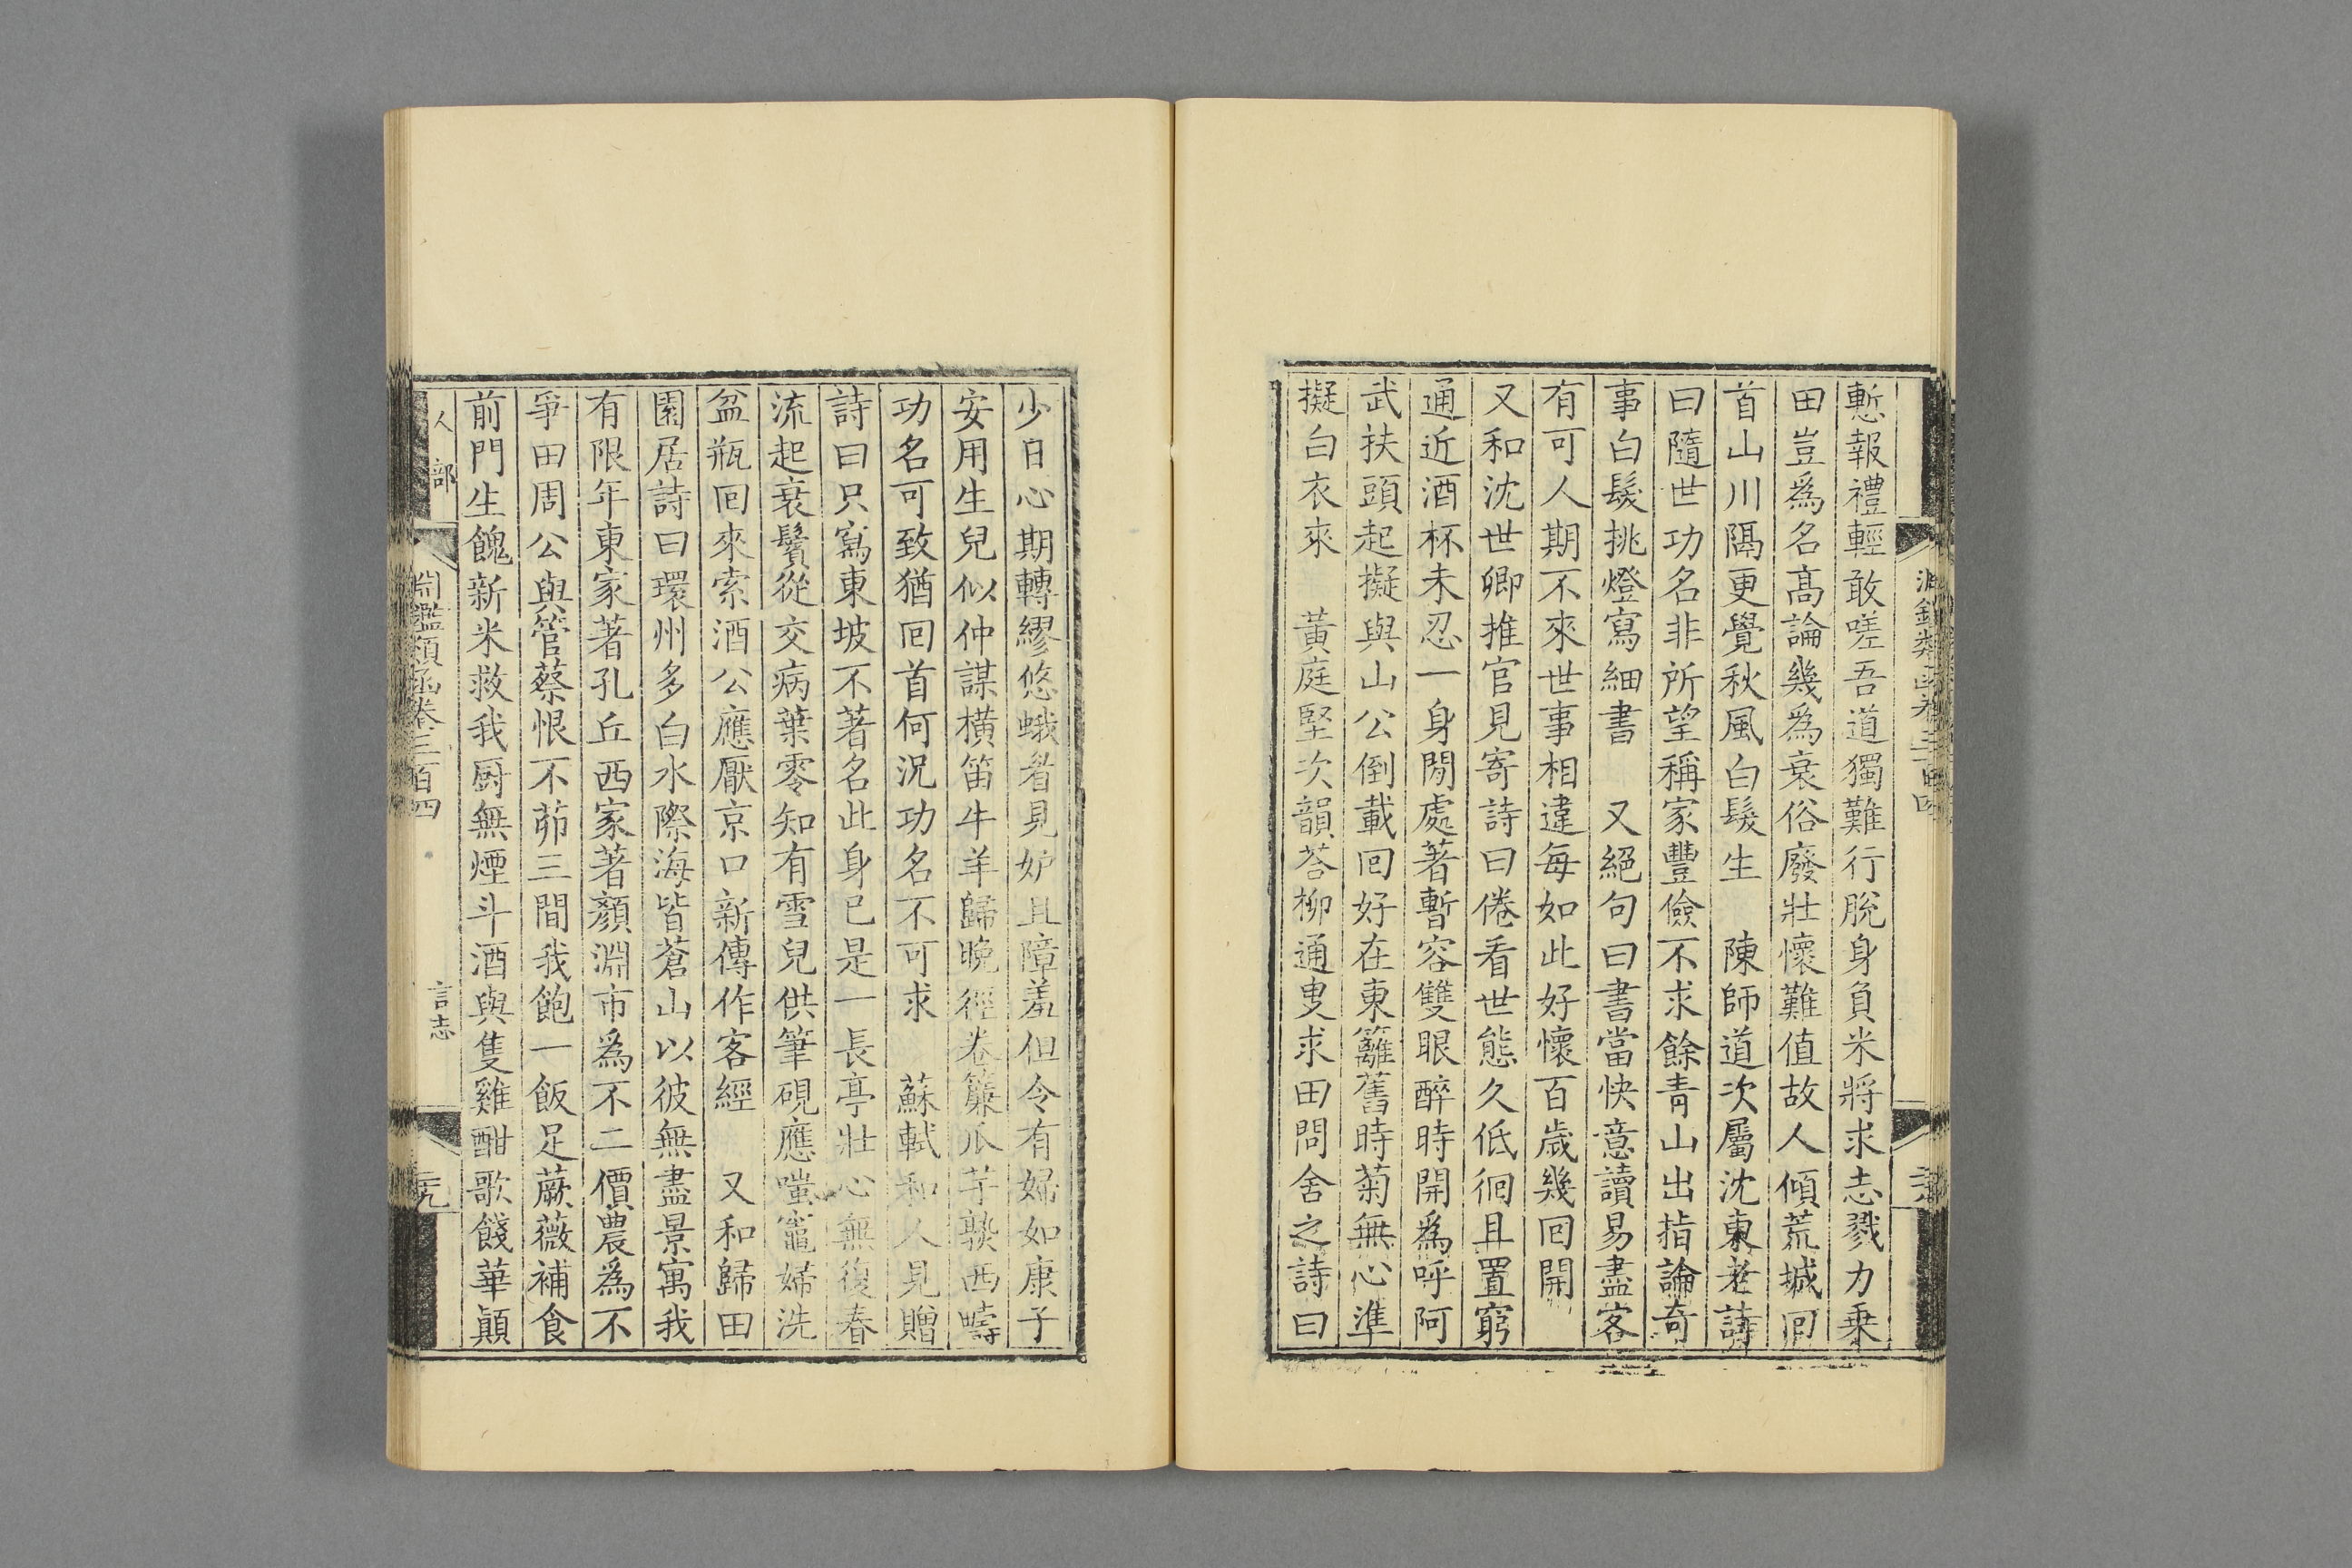 慙報禮輕敢嗟吾道獨難行脫身負米將求志戮力乗
田豈爲名髙論幾爲衰俗廢壯懷難值故人傾荒城囘
首山川隔更覺秋風白髮生　陳師道次屬沈東老詩
曰隨世功名非所望稱家豐儉不求餘青山出指論奇
事白髮挑燈寫細書　又絕句曰書當快意讀易盡客
有可人期不來世事相違每如此好懷百歲幾囘開
又和沈世卿推官見寄詩曰倦看世態久低徊且置窮
通近酒杯未忍一身閒處著暫容雙眼醉時開爲呼阿
武扶頭起擬與山公倒載囘好在東籬舊時菊無心準
擬白衣來　黃庭堅次韻荅柳通叟求田問舍之詩曰
少日心期轉繆悠蛾眉見妒且障羞但令有婦如康子
安用生兒似仲謀橫笛牛羊歸晚徑卷簾瓜芋熟西疇
功名可致猶囘首何況功名不可求　蘇軾和人見贈
詩曰只寫東坡不著名此身已是一長亭壯心無復春
流起衰鬢從交病葉零知有雪兒供筆硯應嗤竈婦洗
盆瓶囘來索酒公應厭京口新傳作客經　又和歸田
園居詩曰環州多白水際海皆蒼山以彼無盡景寓我
有限年東家著孔丘西家著顏淵市爲不二價農爲不
爭田周公與管蔡恨不茆三間我飽一飯足蕨薇補食
前門生餽新米救我厨無煙斗酒與隻雞酣歌餞華顚
人部
淵鑑類函卷三百四
言志